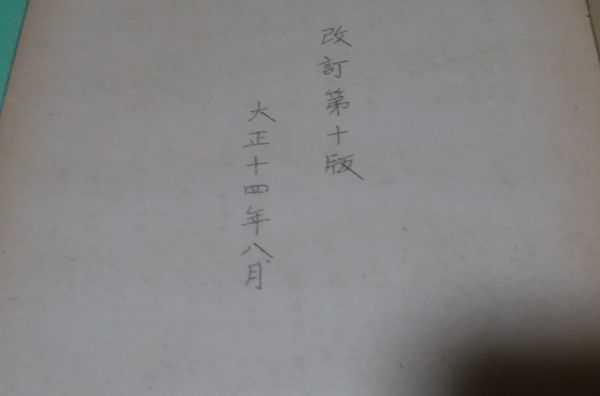 改訂第十版
大正十四年八月